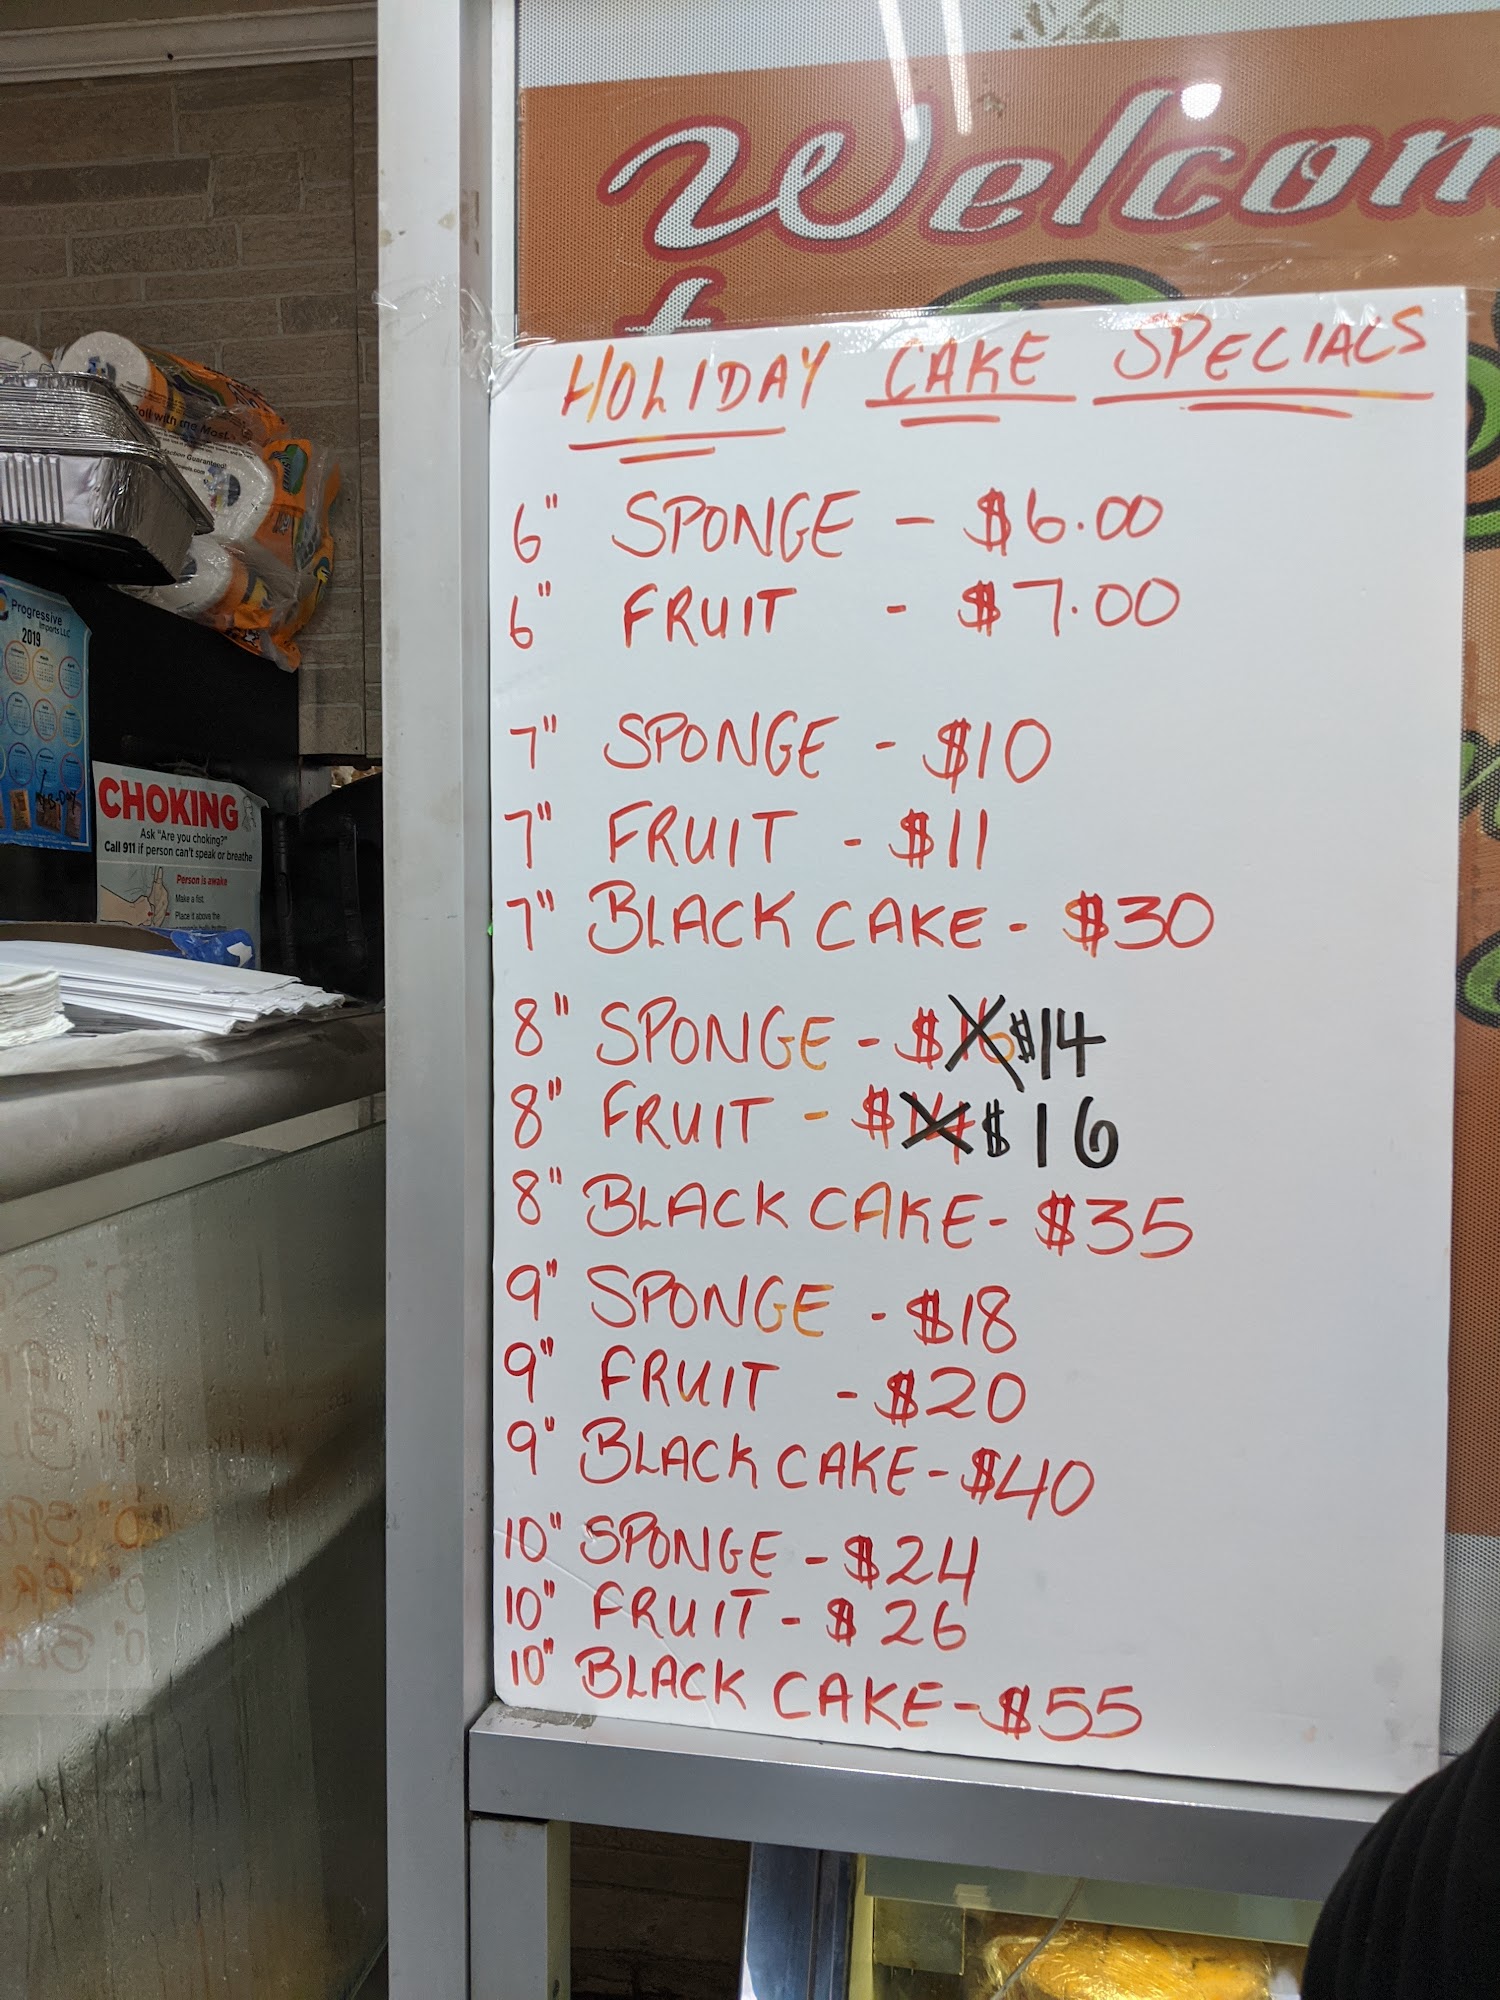 Welcom
t
HOLIDAY CAKE SPECIALS
6" SPONGE - $6.00
6" FRUIT - $7.00
7" SPONGE - $10
7" FRUIT - $11
7" BLACK CAKE - $30
8" SPONGE - $16 $14
8" FRUIT - $14 $16
8" BLACK CAKE - $35
9" SPONGE - $18
9" FRUIT - $20
9" BLACK CAKE - $40
10" SPONGE - $24
10" FRUIT - $26
10" BLACK CAKE - $55
Roll with the Most
Guaranteed!
Progressive
Imports LLC
2019
CHOKING
Ask "Are you choking?"
Call 911 if person can't speak or breathe
Person is awake
Make a fist
Place it above the